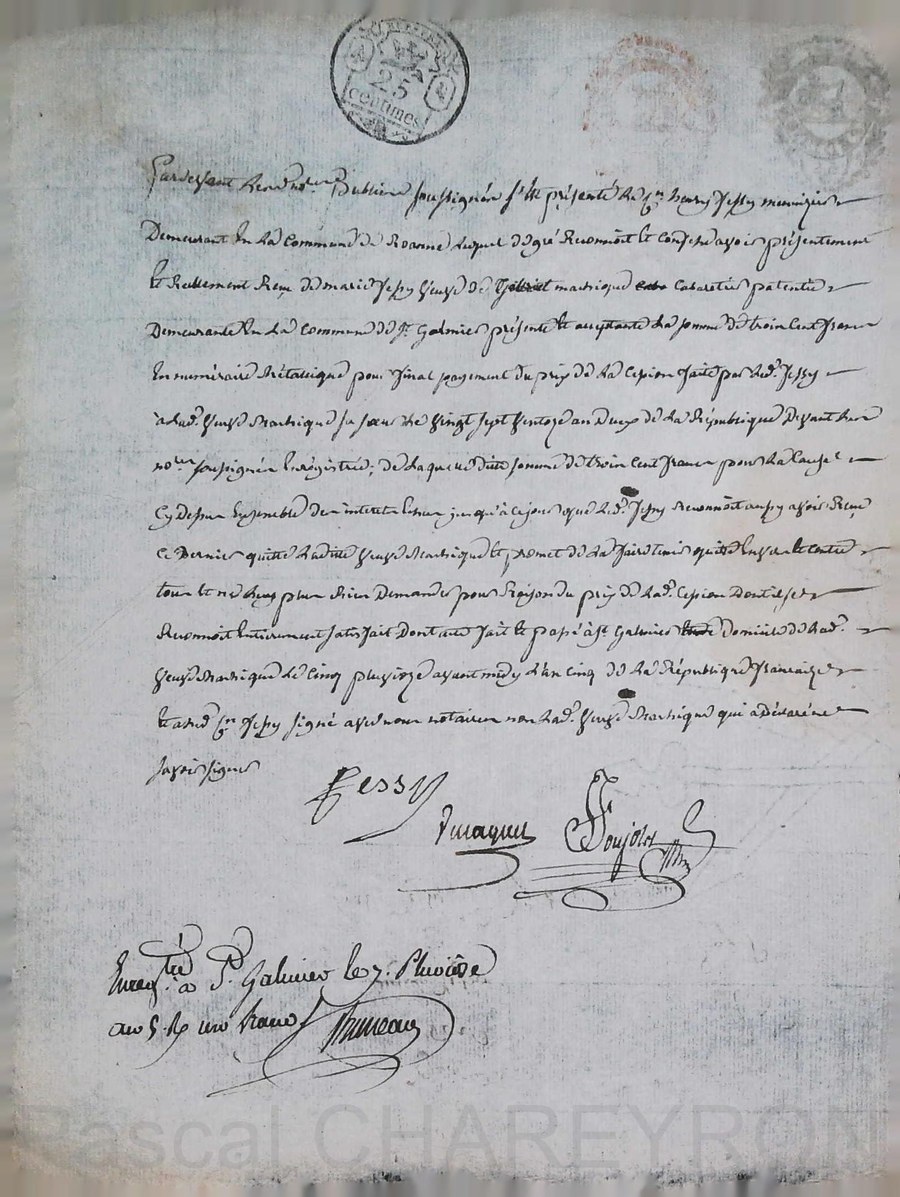 25
centimes
Pardevant Les no.res Publics soussignés s'est présenté le C.en henry fessy meunier
Demeurant en La Commune de Roanne Lequel de gré Reconnoit et Confesse avoir présentement
et Réellement Reçu de marie fessy veuve de martique Cabaretier patentée
Demeurante en La Commune de S.t Galmier présente et acceptante La somme de trois Cent francs
En numéraire Métallique pour final payement du prix de La Cession faite par Led. fessy
à Lad. veuve Martique sa sœur Le vingt sept ventoze an Deux de La République Devant Les
no.res soussignés Enrégistrée; de Laquelle ditte somme de trois Cent francs pour La Cause
Cy Dessus Ensemble Des interets Echus jusqu'à ce jour que Led. fessy Reconnoit aussy avoir Reçu
Ce Dernier quitte Laditte veuve Martique et promet de La faire tenir quitte Envers et Contre
tous et ne Luy plus Rien Demander pour Raison du prix de Lad. Cession Dont il se
Reconnoit Entierement satisfait Dont acte fait et passé à St Galmier Domicile de Lad.
veuve Martique Le Cinq pluvioze avant midy L'an Cinq de La République francaize
et a Led. C.en fessy signé avec nous notaires non Lad. veuve Martique qui a Déclaré ne
savoir signer
fessy
Enreg.tré à S.t Galmier le 7. Pluviôse
an 5. R un franc
Pascal CHAREYRON